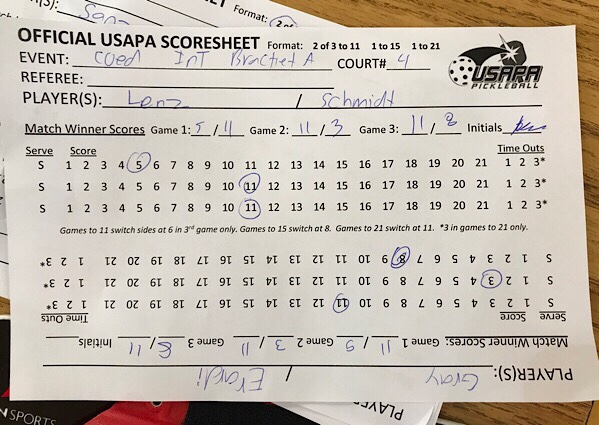 Format: 2 of
OFFICIAL USAPA SCORESHEET Format: 2 of 3 to 11 1 to 15 1 to 21
EVENT: Coed InT Bracket A COURT# 4
REFEREE:
USAPA
PICKLEBALL
PLAYER(S): Lenz / Schmidt
Match Winner Scores Game 1: 5 / 11 Game 2: 11 / 3 Game 3: 11 / 8 Initials
Serve Score Time Outs
S 1 2 3 4 5 6 7 8 9 10 11 12 13 14 15 16 17 18 19 20 21 1 2 3*
S 1 2 3 4 5 6 7 8 9 10 11 12 13 14 15 16 17 18 19 20 21 1 2 3*
S 1 2 3 4 5 6 7 8 9 10 11 12 13 14 15 16 17 18 19 20 21 1 2 3*
Games to 11 switch sides at 6 in 3rd game only. Games to 15 switch at 8. Games to 21 switch at 11. *3 in games to 21 only.
PLAYER(S): Gray / Erardi
Match Winner Scores: Game 1 11 / 5 Game 2 3 / 11 Game 3 8 / 11 Initials
Serve Score Time Outs
S 1 2 3 4 5 6 7 8 9 10 11 12 13 14 15 16 17 18 19 20 21 1 2 3*
S 1 2 3 4 5 6 7 8 9 10 11 12 13 14 15 16 17 18 19 20 21 1 2 3*
S 1 2 3 4 5 6 7 8 9 10 11 12 13 14 15 16 17 18 19 20 21 1 2 3*
N SPORTS
PLAYE